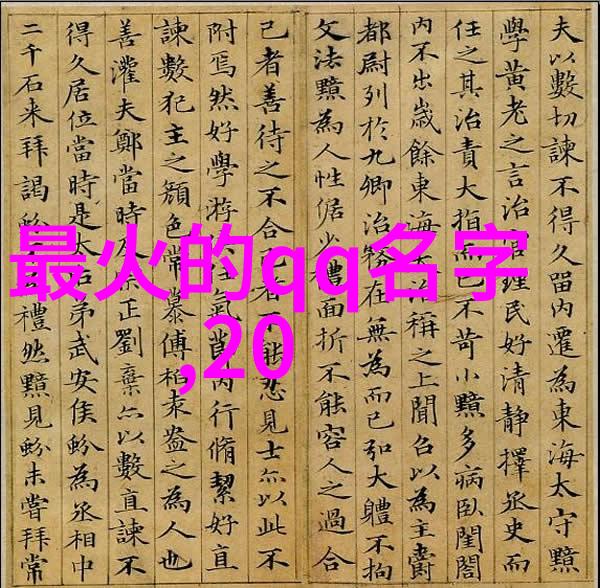 最火的qq名字
,20
夫以數切諫不得久留內遷為東海太守黯
學黃老之言治官理民好清靜擇丞史而
任之其治責大指而已不苛小黯多病臥閨閤
內不出歲餘東海大治稱之上聞召以為主爵
都尉列於九卿治務在無為而已弘大體不拘
文法黯為人性倨少禮面折不能容人之過合
己者善待之不合己者不能忍見士亦以此不
附焉然好學游任氣節內行脩絜好直
諫數犯主之顏色常慕傅柏袁盎之為人也
善灌夫鄭當時正劉棄亦以數直諫不
得久居位當時是太后弟武安侯蚡為丞相中
二千石来拜謁蚡禮然黯見蚡未嘗拜常